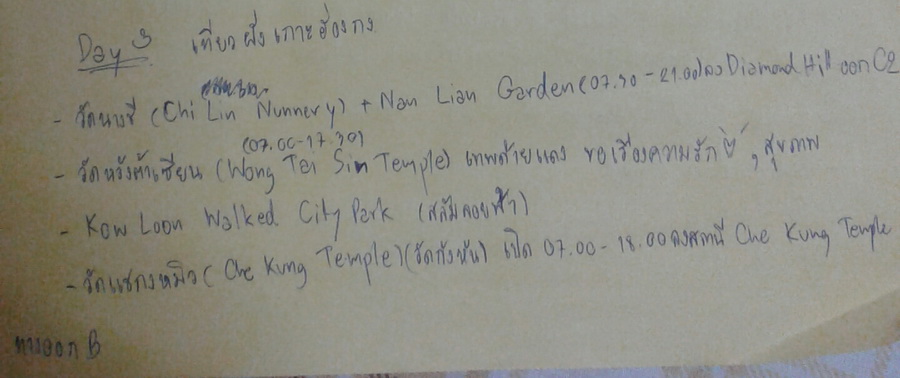 Day 3 เที่ยวฝั่งเกาะฮ่องกง
- วัดนางชี (Chi Lin Nunnery) + Nan Lian Garden (07.30 - 21.00) ลง Diamond Hill ออก C2
(07.00-17.30)
- วัดหวังต้าเซียน (Wong Tai Sin Temple) เทพด้ายแดง ขอเรื่องความรัก , สุขภาพ
- Kow Loon Walked City Park (สลัมลอยฟ้า)
- วัดแชกงหมิว (Che Kung Temple) (วัดกังหัน) เปิด 07.00 - 18.00 ลงสถานี Che Kung Temple
ทางออก B